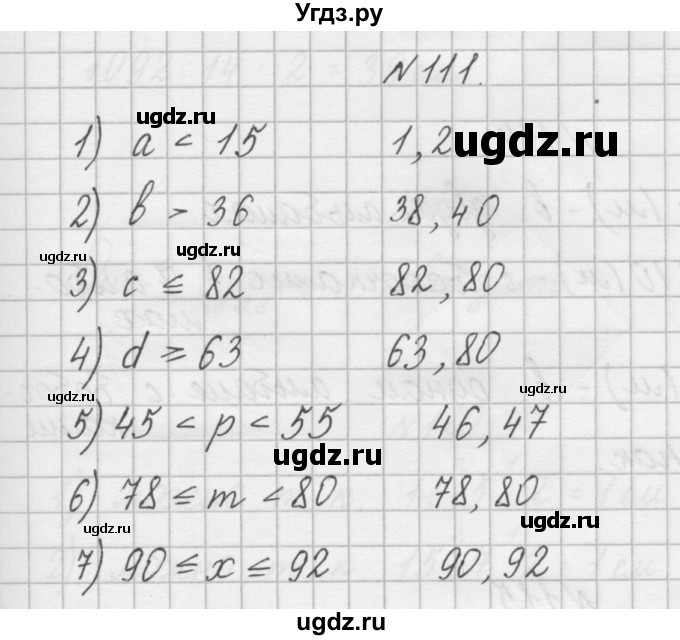 Угдз.ру
№ 111.
ugdz.ru
1) a < 15 1, 2 ugdz.ru
2) b > 36 38, 40
ugdz.ru ugdz.ru
3) c ≤ 82 82, 80
4) d ≥ 63 63, 80
ugdz.ru ugdz.ru
5) 45 < p < 55 46, 47
ugdz.ru
6) 78 ≤ m < 80 78, 80
ugdz.ru ugdz.ru
7) 90 ≤ x ≤ 92 90, 92
ugdz.ru